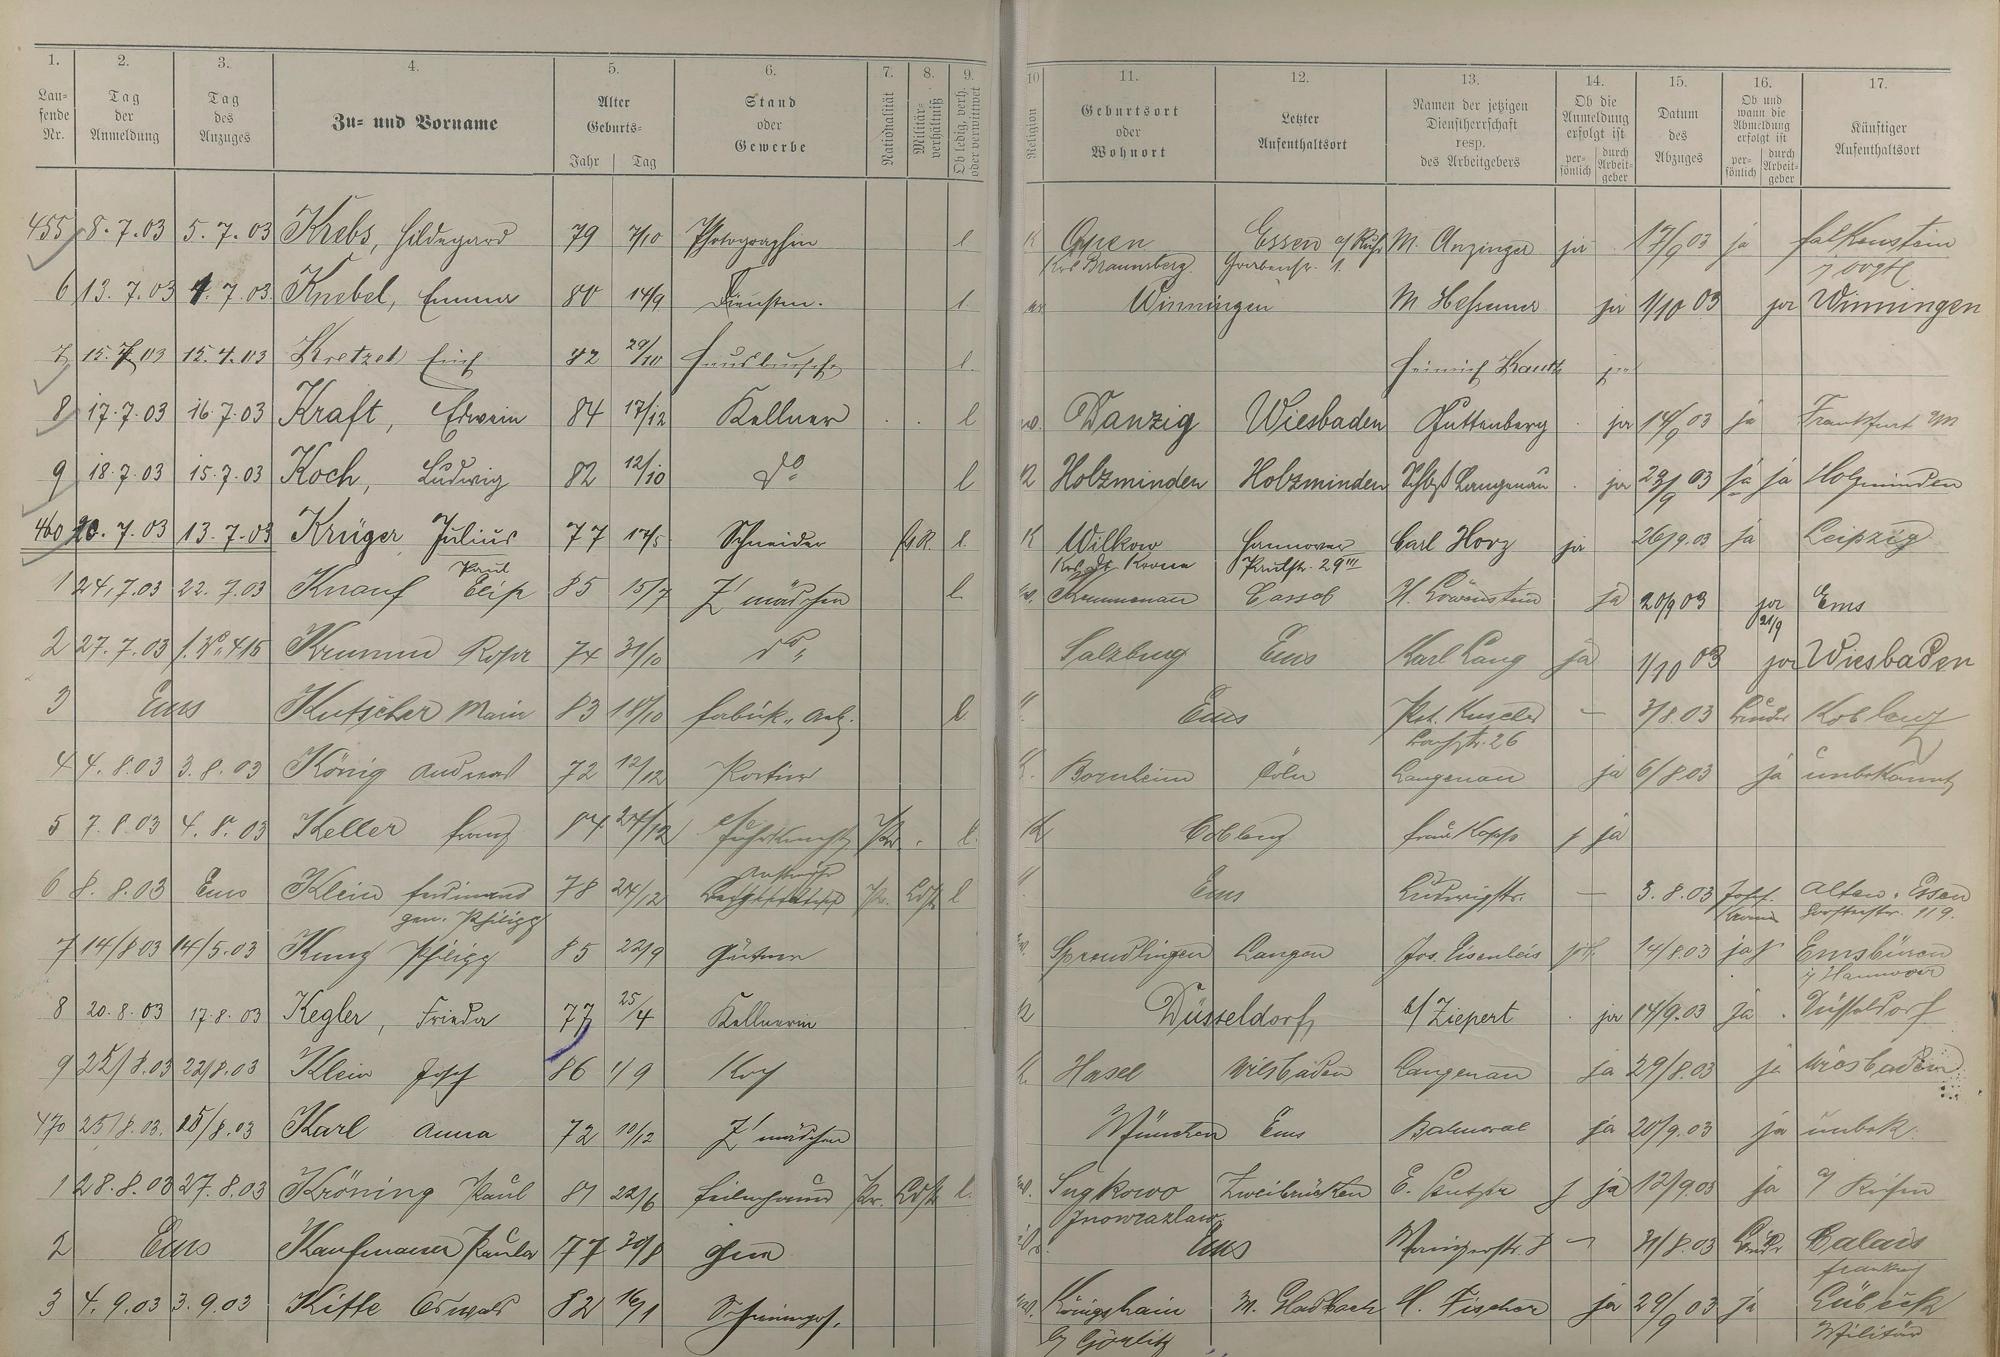 1. 2. 3. 4. 5. 6. 7. 8. 9. 10 11. 12. 13. 14. 15. 16. 17.
Laufende Nr. Tag der Anmeldung Tag des Anzuges Zu- und Vorname Alter Geburts- Jahr Tag Stand oder Gewerbe Nationalität Militärverhältniß Ob ledig, verh. oder verwittwet Religion Geburtsort oder Wohnort Letzter Aufenthaltsort Namen der jetzigen Dienstherrschaft resp. des Arbeitgebers Ob die Anmeldung erfolgt ist persönlich durch Arbeitgeber Datum des Abzuges Ob und wann die Abmeldung erfolgt ist persönlich durch Arbeitgeber Künftiger Aufenthaltsort
455 8.7.03 5.7.03 Krebs, Hildegard 79 7/10 Photographin l K Open Essen a/Ruhr M. Anzinger ja 17/9 03 ja Falkenstein
Krs Braunsberg Grabenstr. 1. i/Vogtl
6 13.7.03 1.7.03 Knebel, Emma 80 14/9 Dienstm. l. Winningen M. ja 1/10 03 ja Winningen
7 15.7.03 15.4.03 Kretzel Emil 82 29/10 Hausbursche l. Heinrich Kauth ja
8 17.7.03 16.7.03 Kraft, Erwein 84 17/12 Kellner l Danzig Wiesbaden Guttenberg ja 14/9 03 ja Frankfurt a/M
9 18.7.03 15.7.03 Koch, Ludwig 82 12/10 do l Holzminden Holzminden Schloß Langenau ja 23/9 03 ja ja Holzminden
460 20.7.03 13.7.03 Krüger Julius 77 17/5 Schneider l. K Wilkow Hannover Carl Horz ja 26/9.03 ja Leipzig
Paul Krs Dt Krone Paulstr. 29 III
1 24.7.03 22.7.03 Knauf Elise 85 15/7 Z'mädchen l. Cassel H. Löwenstein ja 20/9 03 ja Ems
21/9
2 27.7.03 f. No 415 Krumm Rosa 74 31/10 do " Salzburg Ems Karl Lang ja 1/10 03 ja Wiesbaden
3 Ems Kutscher Maria 83 18/10 Fabrik. Arb. l " Ems - 3/8.03 Koblenz
26
4 4.8.03 3.8.03 König Andreas 72 12/12 Portier K. Bornheim Cöln Langenau ja 6/8.03 ja unbekannt
5 7.8.03 4.8.03 Keller Franz 84 24/12 Fuhrknecht Pr. l. K Coblenz Frau Kopp ja
6 8.8.03 Ems Klein Ferdinand 78 24/12 Anstreicher Pr. Ldst l " Ems Ludwigstr. - 3.8.03 Josef Alten-Essen
gen. Philipp 119.
7 14/8 03 14/5.03 Kunz Philipp 85 22/9 Gärtner Sprendlingen Langen Jos. Eisenleis 14/8.03 ja Emsbüren
i/Hannover
8 20.8.03 17.8.03 Kegler, Frieda 77 25/4 Kellnerin K Düsseldorf b/Ziepert ja 14/9.03 ja Düsseldorf
9 25/8.03 22/8.03 Klein Josef 86 1/9 Koch K. Hasel Wiesbaden Langenau ja 29/8.03 ja Wiesbaden
470 25/8.03. 25/8.03 Karl Anna 72 10/12 Z'mädchen München Ems Balmoral ja 20/9.03 ja unbek.
1 28.8.03 27.8.03 Kröning Paul 81 22/6 Pr. Ldst l. Zweibrücken ja 12/9.03 ja a/Reisen
Inowrazlaw
2 Ems Kaufmann Paula 77 30/8 ohne Ems Mainzerstr. 8 31/8.03 Calais
Frankrch
3 4.9.03 3.9.03 Kitte Oswald 82 16/1 Königshain M. Gladbach H. Fischer ja 29/9 03 ja Lübeck
b/Görlitz Militär